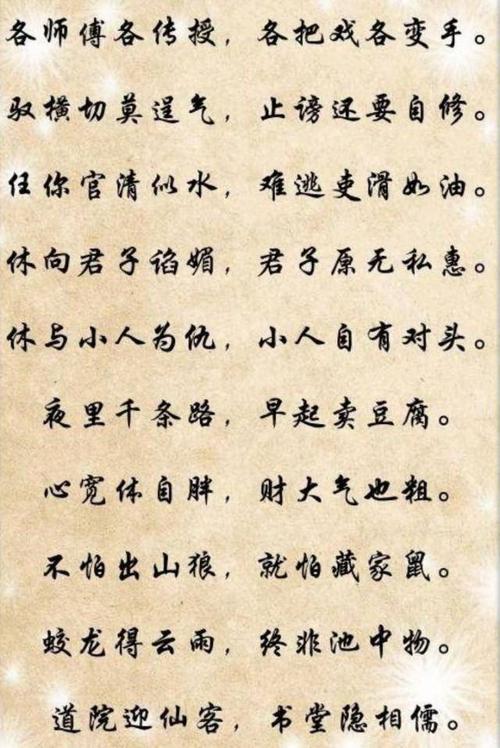 各师傅各传授，各把戏各变手。
驭横切莫逞气，止谤还要自修。
任你官清似水，难逃吏滑如油。
休向君子谄媚，君子原无私惠。
休与小人为仇，小人自有对头。
夜里千条路，早起卖豆腐。
心宽体自胖，财大气也粗。
不怕出山狼，就怕藏家鼠。
蛟龙得云雨，终非池中物。
道院迎仙客，书堂隐相儒。